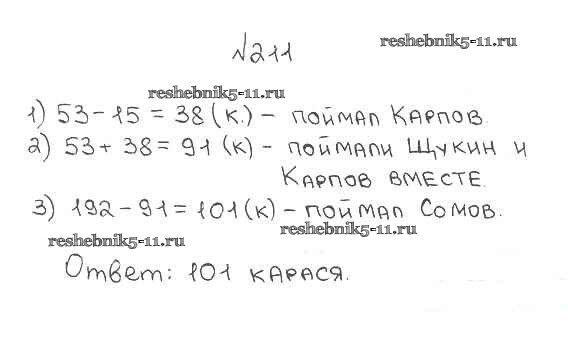 №211
reshebnik5-11.ru
reshebnik5-11.ru
1) 53-15=38 (к.) - поймал Карпов.
2) 53+38=91 (к) - поймали Щукин и
Карпов вместе.
3) 192-91=101 (к) - поймал Сомов.
reshebnik5-11.ru
reshebnik5-11.ru
Ответ: 101 карася.